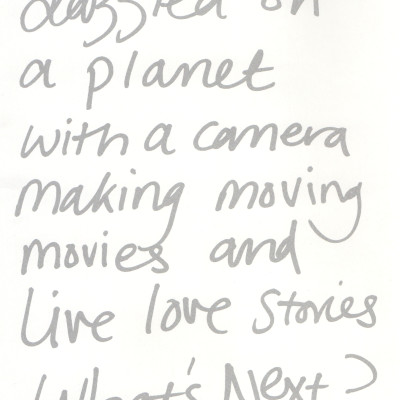 dazzled on
a planet
with a camera
making moving
movies and
live love stories
What's Next?